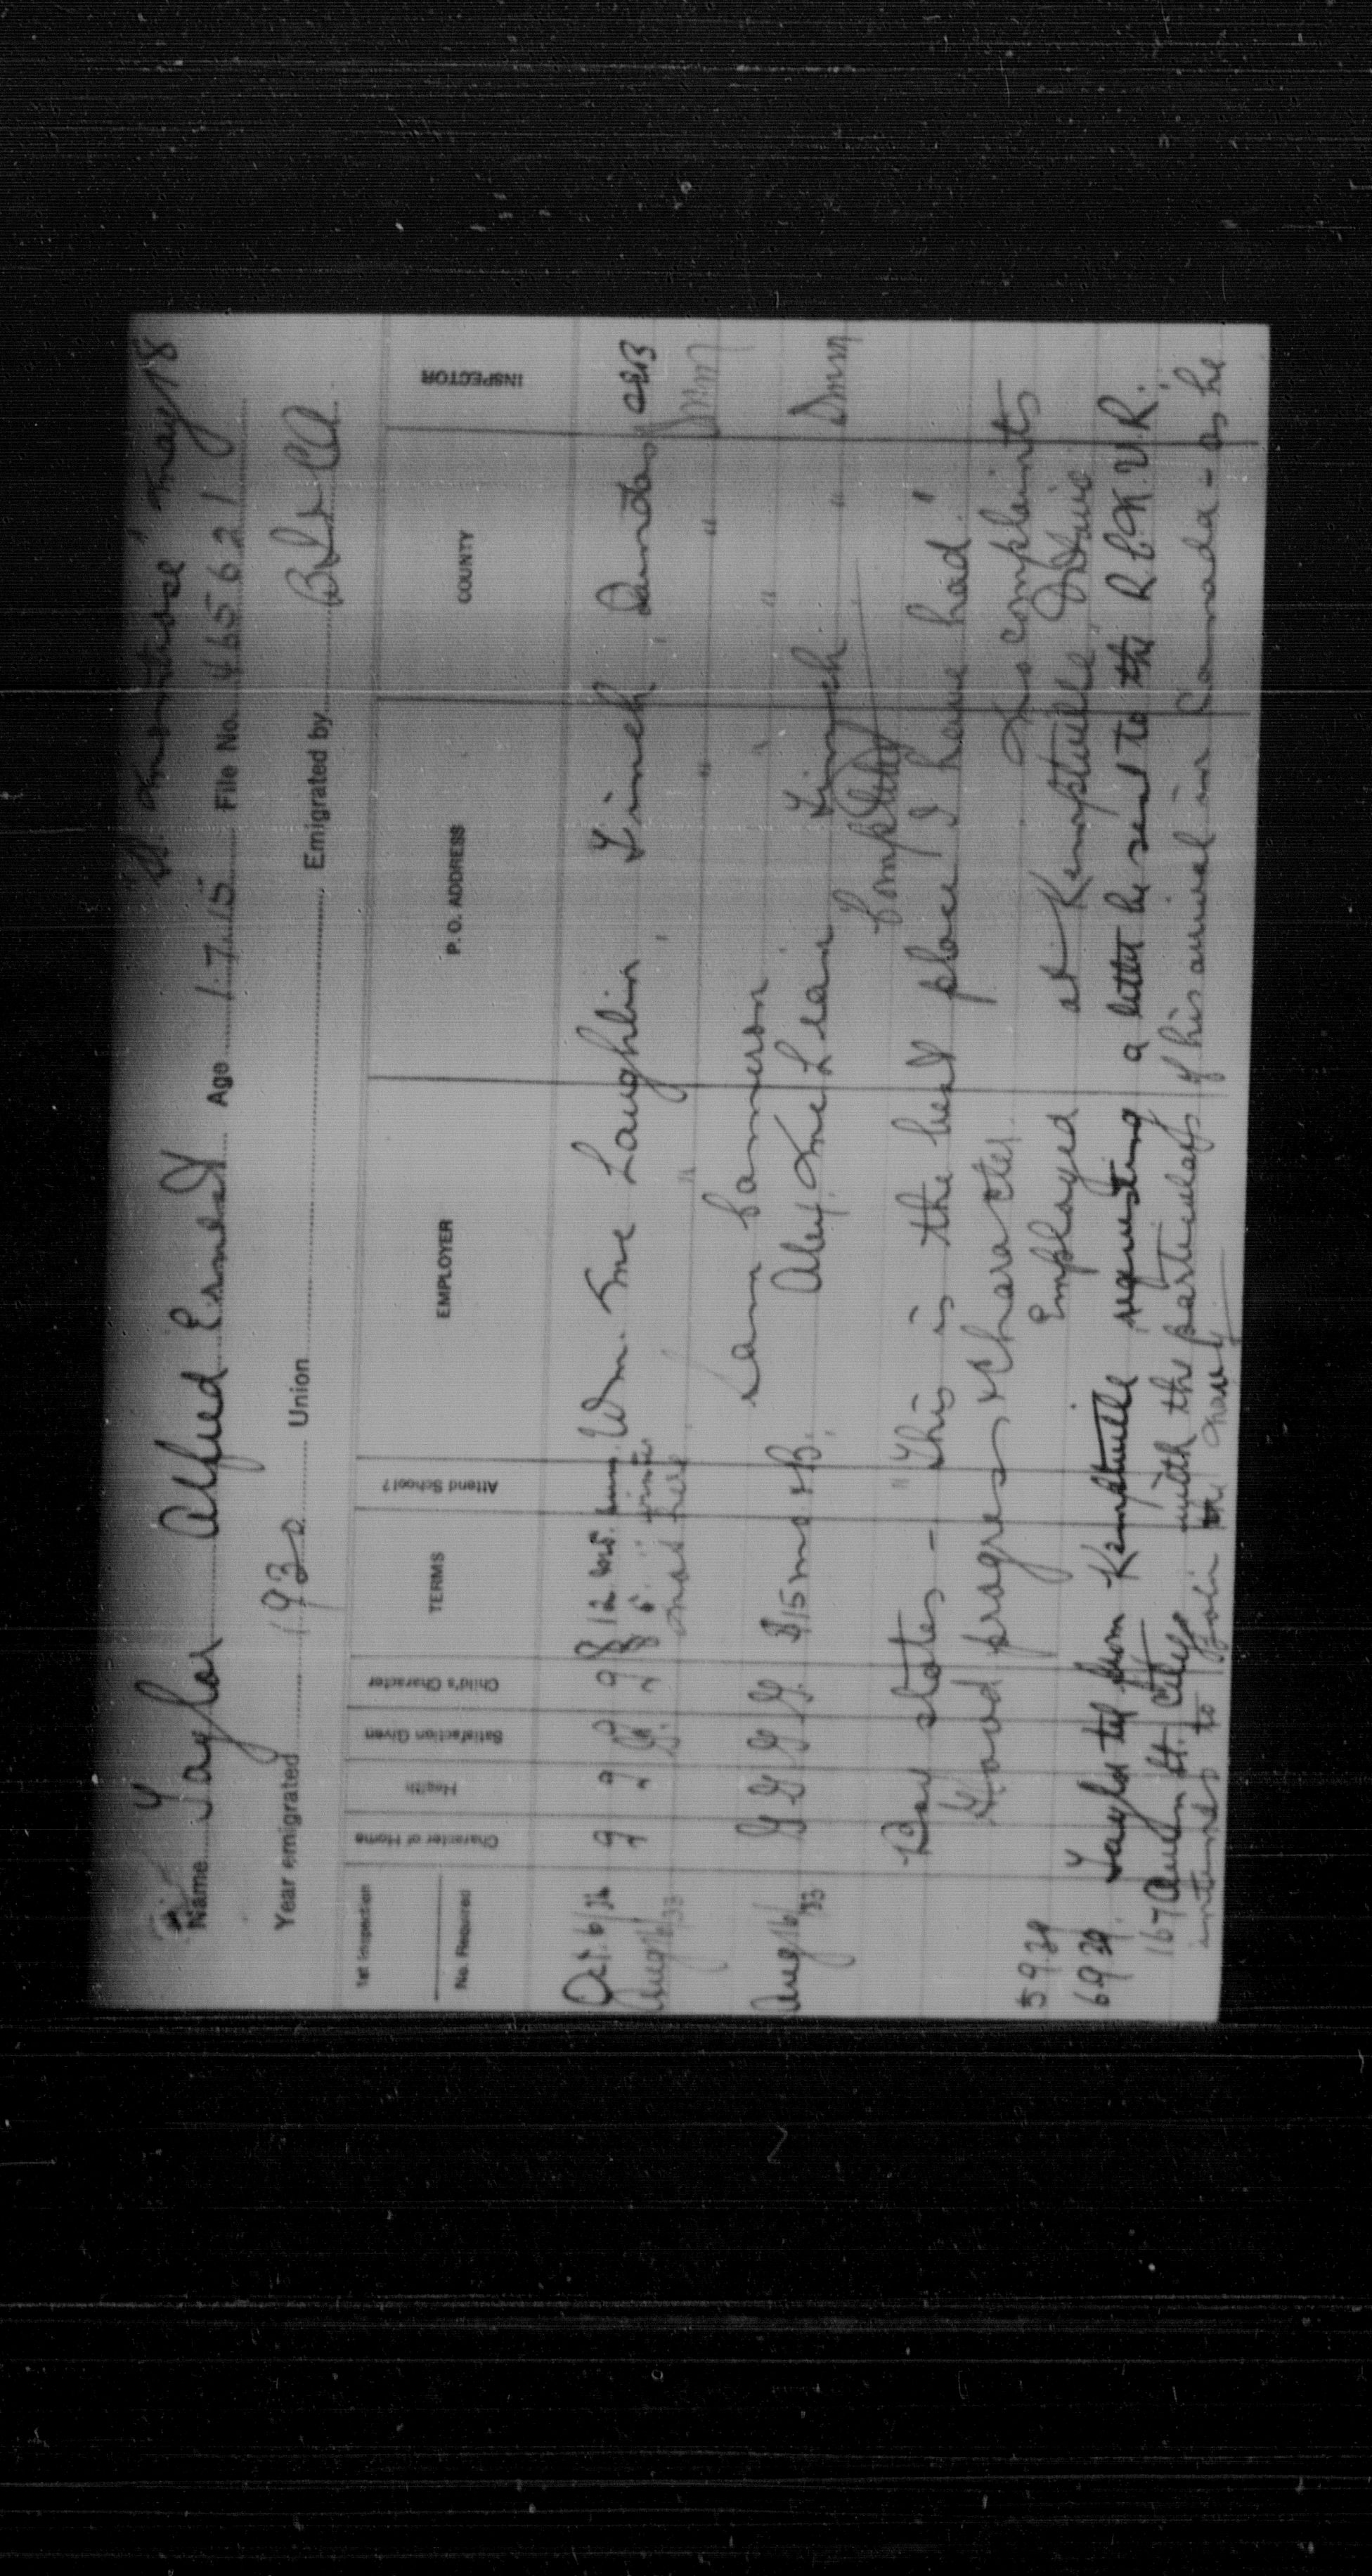 SS Montrose May 18
Name Taylor Alfred Ernest Age 1.7.15 File No. 465621
Year emigrated 1930 Union Emigrated by
1st Inspection
No. Required
Character of Home Health Satisfaction Given Child's Character TERMS Attend School? EMPLOYER P. O. ADDRESS COUNTY INSPECTOR
Oct. 6/32 g g g g $12 mos. sum. Wm. McLaughlin Finch, Dundas CEB
Aug 16/33 $5 " winter " " " DMM
not here
Sam Cameron " "
Aug 16/33 G G G G $15 mo + B. Alex McLean Finch " DMM
Completed
Boy states - "This is the best place I have had."
Good progress + character. No complaints
5 9 39 Employed at Kemptville
6 9 39. Taylor tel from Kemptville requesting a letter be sent to the R.C.N.V.R.
167 Queen St. City with the particulars of his arrival in Canada - as he
intends to join the Navy